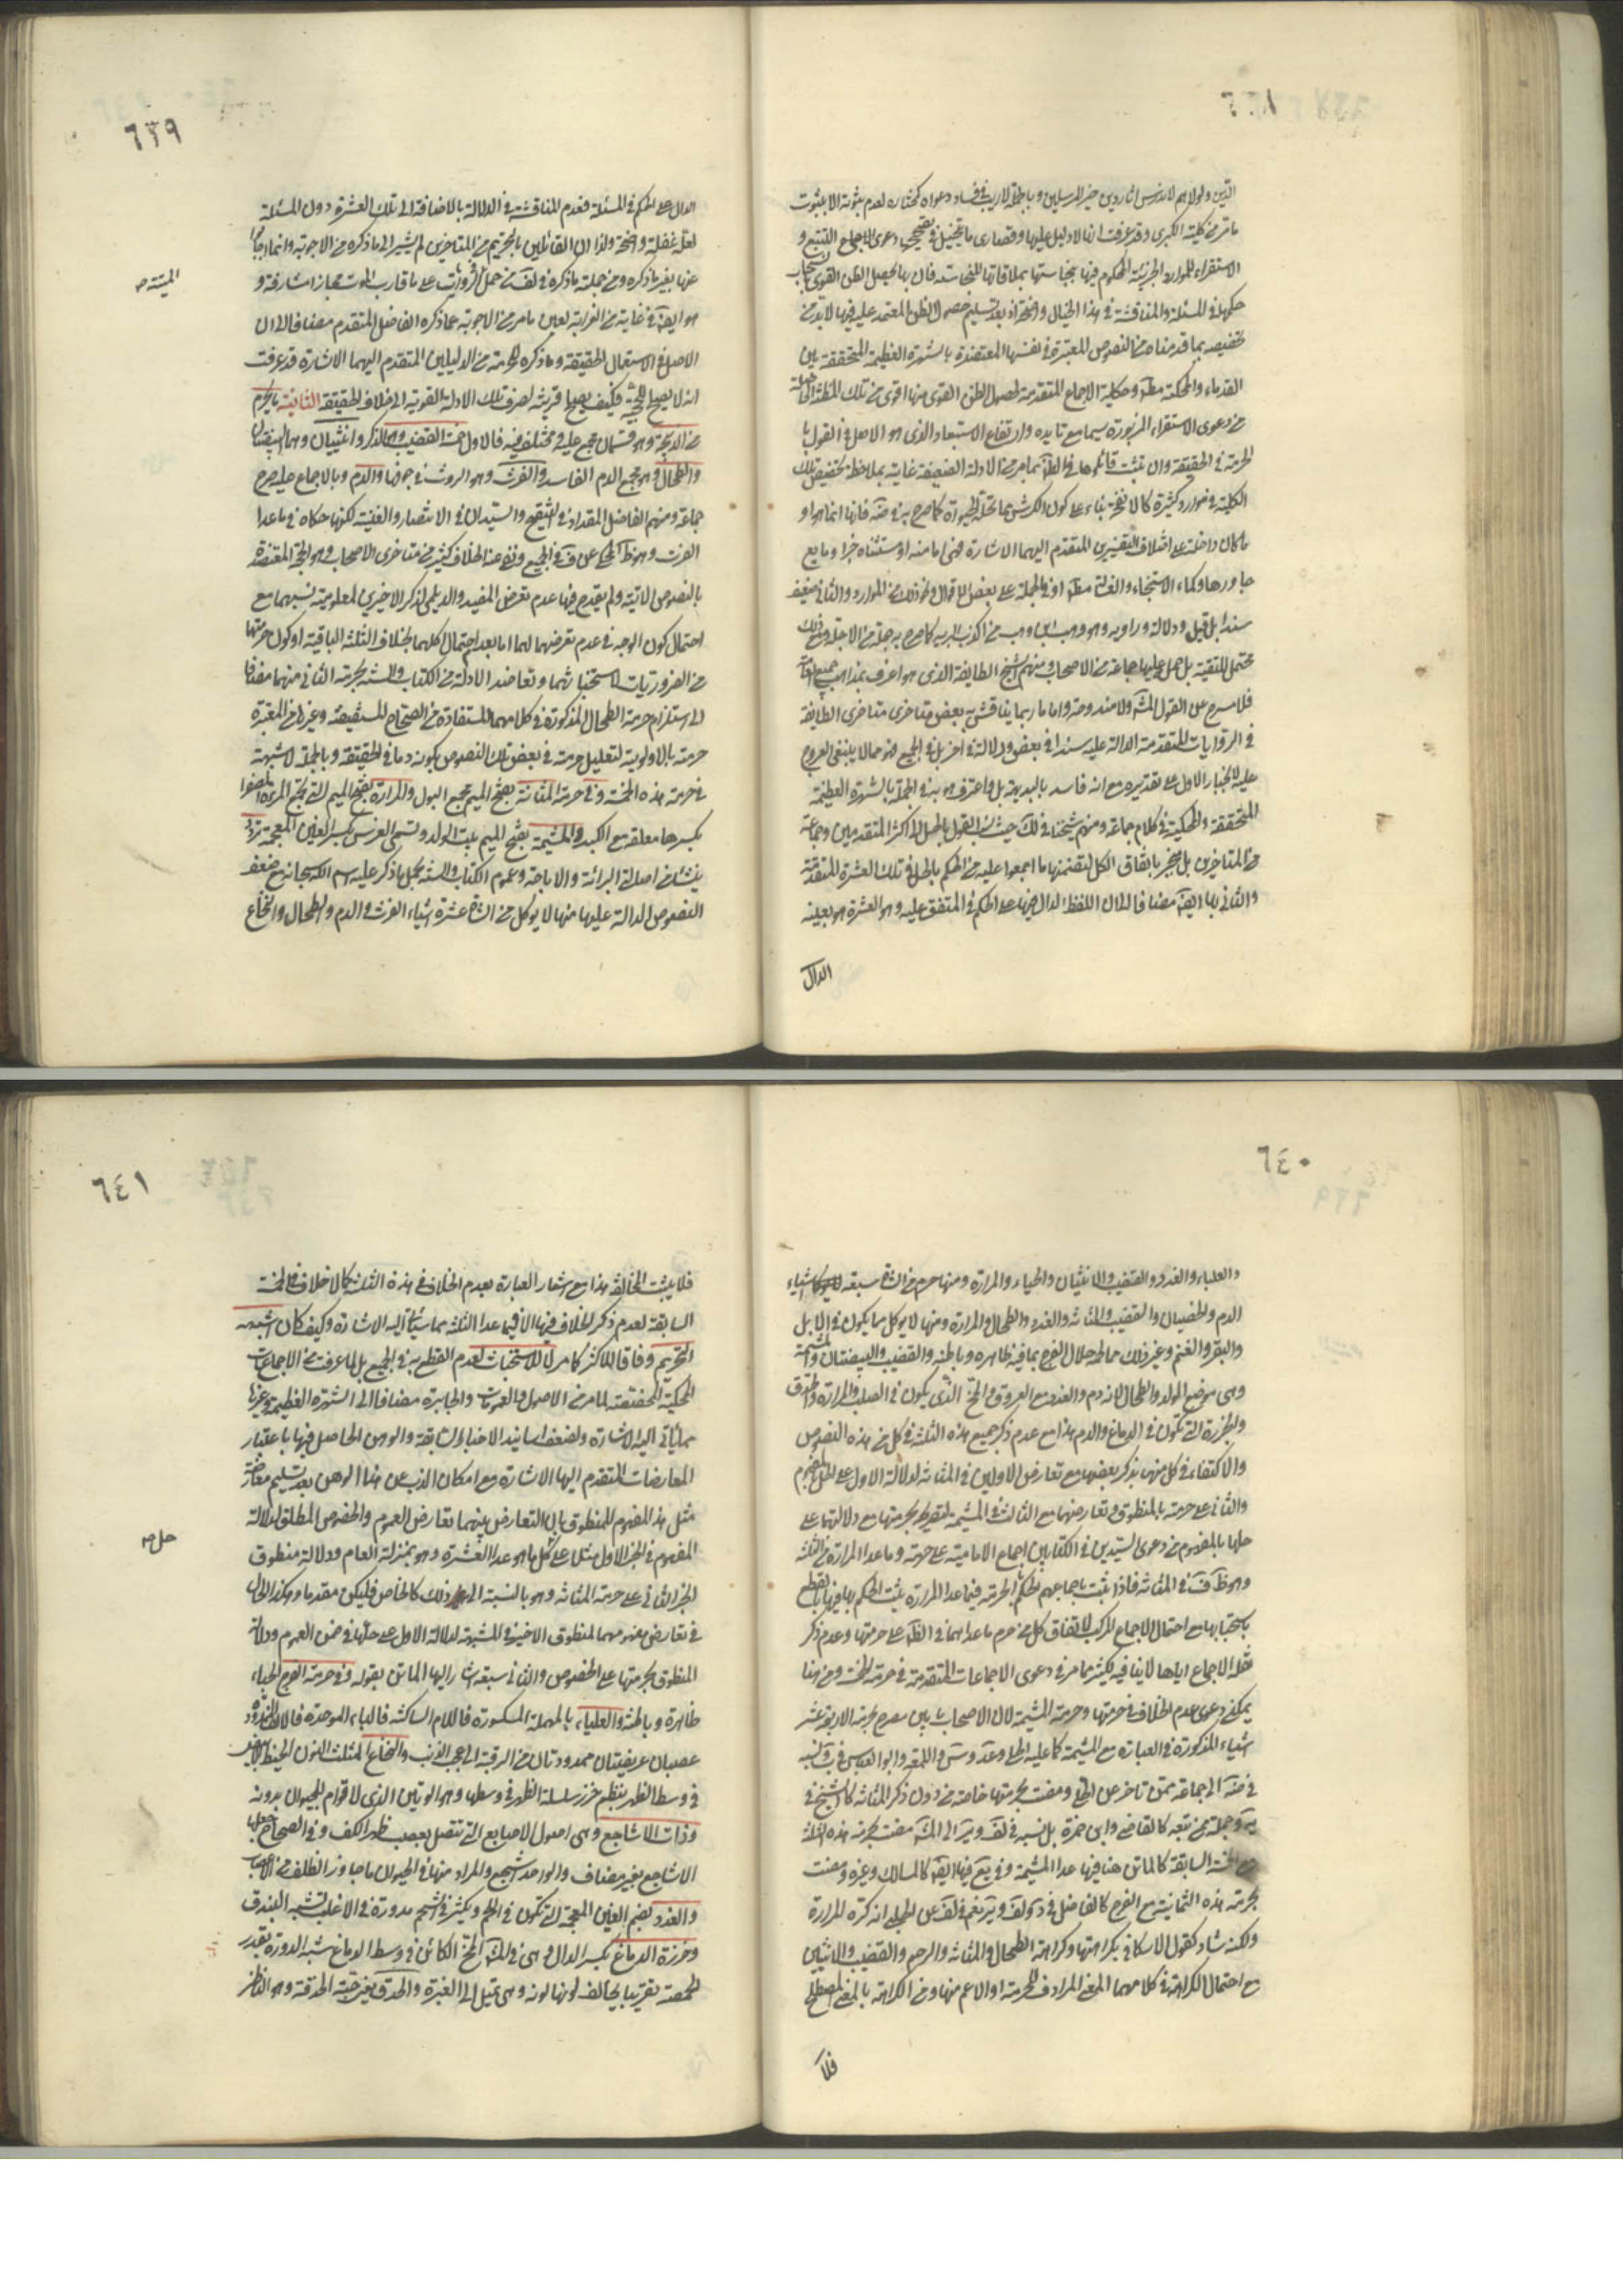 ٦٣٨
الدين ولولاهم لاندرس اثار دين خير المرسلين وبالجملة لا ريب في فساد دعواه كمختاره لعدم ثبوته الا بثبوت
ما مر من كلية الكبرى وقد عرفت ان لا دليل عليها وقصارى ما يتخيل في تصحيحها دعوى الاجماع التتبع و
الاستقراء للموارد الجزئية المحكوم فيها بنجاستها بملاقاتها للنجاسة فان بها يحصل الظن القوى
حكمها في المسئلة والمناقشة في هذا الخيال واضحة اذ بعد تسليم حصول الظن المعتمد عليه فيها لا بد من
تخصيصه بما قدمناه من النصوص المعتبرة في نفسها المعتضدة بالشهرة العظيمة المتحققة بين
القدماء والمحكية مطلقا وحكاية الاجماع المتقدمة لحصول الظن القوى منها اقوى من تلك المظنة
من دعوى الاستقراء المزبورة سيما مع تايده وارتفاع الاستبعاد الذى هو الاصل في القول با
لحرمة في الحقيقة وان تشبث قائلوها في الظاهر بما مر من الادلة الضعيفة غايته بملاحظة تخصيص تلك
الكلية في موارد كثيرة كالانفحة بناء على كون الكرش مما تحله الحيوة كما صرح به في ضة فانها اما هو او
ما كان داخله على اختلاف التفسيرين المتقدم اليهما الاشارة فهى اما منه او مستثناه جزا وما يع
جاورها وكماء الاستنجاء والغسالة مطلقا او في الجملة على بعض الاقوال ونحو ذلك من الموارد والثاني ضعيف
سندا بل قيل ودلالة وراويه وهو وهب بن وهب من اكذب البرية كما صرح به جملة من الاجلة ومع ذلك
محتمل للتقية بل حمل عليها جماعة من الاصحاب ومنهم شيخ الطايفة الذى هو اعرف بمذاهب
فلا مسرح عن القول المشهور ولا مندوحة واما ما ربما يناقش به بعض متاخرى متاخرى الطايفة
في الروايات المتقدمة الدالة عليه سندا في بعض ودلالة في اخر بل في الجميع فهو مما لا ينبغى العروج
عليه لانجبار الاول على تقديره مع انه فاسد بالبديهة بل واعترف هو به في الجملة بالشهرة العظيمة
المتحققة والمحكية في كلام جماعة ومنهم شيخنا في لك حيث نسب القول بالحل الى اكثر المتقدمين وجماعة
من المتاخرين بل منجبر باتفاق الكل لتضمنها ما اجمعوا عليه من الحكم بالحل في تلك العشرة المتقدمة
والثاني بها ايضا مضافا الى ان اللفظ الدال فيها على الحكم في المتفق عليه وهو العشرة هو بعينه
الدال
٦٣٩
الدال على الحكم في المسئلة فعدم المناقشة في الدلالة بالاضافة الى تلك العشرة دون المسئلة
لعله غفلة واضحة ولذا ان القائلين بالتحريم من المتاخرين لم يشيروا الى ما ذكره من الاجوبة وانما اجابوا
عنها بغير ما ذكره ومن جملته ما ذكره في لف من حمل الروايات على ما قارب الموت مجازا مشارفة و
الميتة ص
هو ايضا في غاية من الغرابة لعين ما مر من الاجوبة عما ذكره الفاضل المتقدم مضافا الى ان
الاصل في الاستعمال الحقيقة وما ذكره للحرمة من الدليلين المتقدم اليهما الاشارة قد عرفت
انه لا يصلح للحجية فكيف يصلح قرينة لصرف تلك الادلة القوية الى خلاف الحقيقة الثانية ما يحرم
من الذبيحة وهو قسمان مجمع عليه ومختلف فيه فالاول خمسة القضيب وهو الذكر وانثييان وهما البيضتان
والطحال وهو مجمع الدم الفاسد والفرث وهو الروث في جوفها والدم وبالاجماع عليه صرح
جماعة ومنهم الفاضل المقداد في التنقيح والسيدان في الانتصار والغنية لكنهما حكياه في ما عدا
الفرث وهو ظاهر المحكى عن ف في الجميع ونفى عنه الخلاف كثير من متاخرى الاصحاب وهو الحجة المعتضدة
بالنصوص الاتية ولم يقدح فيها عدم تعرض المفيد والديلمى لذكر الاخيرين لمعلومية نسبهما مع
احتمال كون الوجه في عدم تعرضهما لهما اما بعد احتمال اكلهما بخلاف الثلثة الباقية او كون حرمتهما
من الضروريات لاستخباثهما وتعاضد الادلة من الكتاب والسنة بحرمة الثاني منهما مضافا
الى استلزام حرمة الطحال المذكورة في كلامهما المستفادة من الصحاح المستفيضة وغيرها من المعتبرة
حرمته بالاولوية لتعليل حرمته في بعض تلك النصوص بكونه دما في الحقيقة وبالجملة لا شبهة
في حرمة هذه الخمسة وفي حرمة المثانة بفتح الميم مجمع البول والمرارة بفتح الميم التي تجمع المرة الصفراء
بكسرها معلقة مع الكبد والمشيمة بفتح الميم بيت الولد وتسمى الغرس بكسر الغين المعجمة تردد
ينشأ من اصالة البرائة والاباحة وعموم الكتاب والسنة بحل ما ذكر عليه اسم الله سبحانه مع ضعف
النصوص الدالة عليها منها لا يؤكل من الشاة عشرة اشياء الفرث والدم والطحال والنخاع
٦٤٠
والعلباء والغدد والقضيب والانثيان والحياء والمرارة ومنها حرم من الشاة سبعة اشياء
الدم والخصيتان والقضيب والمثانة والغدد والطحال والمرارة ومنها لا يؤكل مما يكون في الابل
والبقر والغنم وغير ذلك مما لحمه حلال الفرج بما فيه ظاهره وباطنه والقضيب والبيضتان والمشيمة
وهى موضع الولد والطحال لانه دم والغدد مع العروق والمخ الذى يكون في الصلب والمرارة والحدق
والخرزة التي تكون في الدماغ والدم هذا مع عدم ذكر جميع هذه الثلثة في كل من هذه النصوص
والاكتفاء في كل منها بذكر بعضها مع تعارض الاولين في المثانة لدلالة الاول على الحل بالمفهوم
والثاني على حرمته بالمنطوق وتعارضهما مع الثالث في المشيمة لتصريحه بحرمتها مع دلالتهما على
حلها بالمفهوم من دعوى السيدين في الكتابين اجماع الامامية على حرمة ما عدا المرارة من الثلثة
وهو ظاهر ف في المثانة فاذا ثبت باجماعهم الحكم بالحرمة فيما عدا المرارة يثبت الحكم بها فيها بالقطع
باستخباثها مع احتمال الاجماع المركب لاتفاق كل من حرم ما عداهما في الظاهر على حرمتها وعدم ذكر
نقلة الاجماع اياها لا ينافيه بكثير مما مر في دعوى الاجماعات المتقدمة في حرمة الخمسة ومن هنا
يمكن دعوى عدم الخلاف في حرمتها وحرمة المشيمة لان الاصحاب ما بين مصرح بحرمة الاربعة عشر
اشياء المذكورة في العبارة مع المشيمة كما عليه الحلى
في ضة الى جماعة ممن تاخر عن الحلى ومفت بحرمتها خاصة من دون ذكر المثانة كالشيخ في
ية وجملة ممن تبعه كالقاضى وابن حمزة بل نسبه في لف وير الى المشهور مفت بحرمة هذه الثلثة
مع الخمسة السابقة كالماتن هنا فيما عدا المشيمة وفي يع فيها ايضا كالمسالك وغيره ومفت
بحرمة هذه الثمانية مع الفرج كالفاضل في د ولف وير نعم في لف عن الحلبي انه كره المرارة
ولكنه شاذ كقول الاسكافي بكراهتها وكراهة الطحال والمثانة والرحم والقضيب والانثيين
مع احتمال الكراهة في كلامهما المعنى المرادف للحرمة او الاعم منها ومن الكراهة بالمعنى المصطلح
فلا
٦٤١
فلا يثبت المخالفة هذا مع اشعار العبارة بعدم الخلاف في هذه الثلثة كما لا خلاف في الخمسة
السابقة لعدم ذكر الخلاف فيها الا فيما عدا الثلثة مما سيأتى اليه الاشارة وكيف كان اشبهه
التحريم وفاقا للاكثر كما مر للاستخباث لعدم القطع به في الجميع بل لما عرفت من الاجماعات
المحكية المخصصة لما مر من الاصول والعمومات والجابرة مضافا الى الشهرة العظيمة وغيرها
مما يأتي اليه الاشارة ولضعف اسانيد الاخبار السابقة والوهن الحاصل فيها باعتبار
المعارضات المتقدم اليها الاشارة مع امكان الذب عن هذا الوهن بعد تسليم معارضة
مثل هذا المفهوم للمنطوق بان التعارض بينهما تعارض العموم والخصوص المطلق لدلالة
المفهوم في الخبر الاول مثلا على كل ما هو عدا العشرة وهو بمنزلة العام ودلالة منطوق
حل ص
الخبر الثاني على حرمة المثانة وهو بالنسبة الى ذلك كالخاص فليكن مقدما وهكذا الحال
في تعارض مفهومهما لمنطوق الاخير في المشيمة لدلالة الاول على حلها في ضمن العموم ودلالة
المنطوق بحرمتها على الخصوص والثاني سبعة اشار اليها الماتن بقوله وفي حرمة الفرج الحياء
ظاهرة وباطنة والعلباء بالمهملة المكسورة فاللام الساكنة فالباء الموحدة فالالف الممدودة
عصبان عريضتان ممدودتان من الرقبة الى عجب الذنب والنخاع المثلث النون الخيط الابيض
في وسط الظهر ينظم خرز سلسلة الظهر في وسطها وهو الوتين الذى لا قوام للحيوان بدونه
وذات الاشاجع وهى اصول الاصابع التي تتصل بعصب ظاهر الكف وفي الصحاح جعلها
الاشاجع بغير مضاف والواحد اشجع والمراد منها في الحيوان ما جاوز الظلف من الاعصاب
والغدد بضم الغين المعجمة التي تكون في اللحم ويكثر في الشحم مدورة في الاغلب تشبه البندق
وخرزة الدماغ بكسر الدال وهى في المشهور المخ الكائن في وسط الدماغ شبه الدودة بقدر
الحمصة تقريبا يخالف لونها لونه وهى تميل الى الغبرة والحدق يعنى حبة الحدقة وهو الناظر